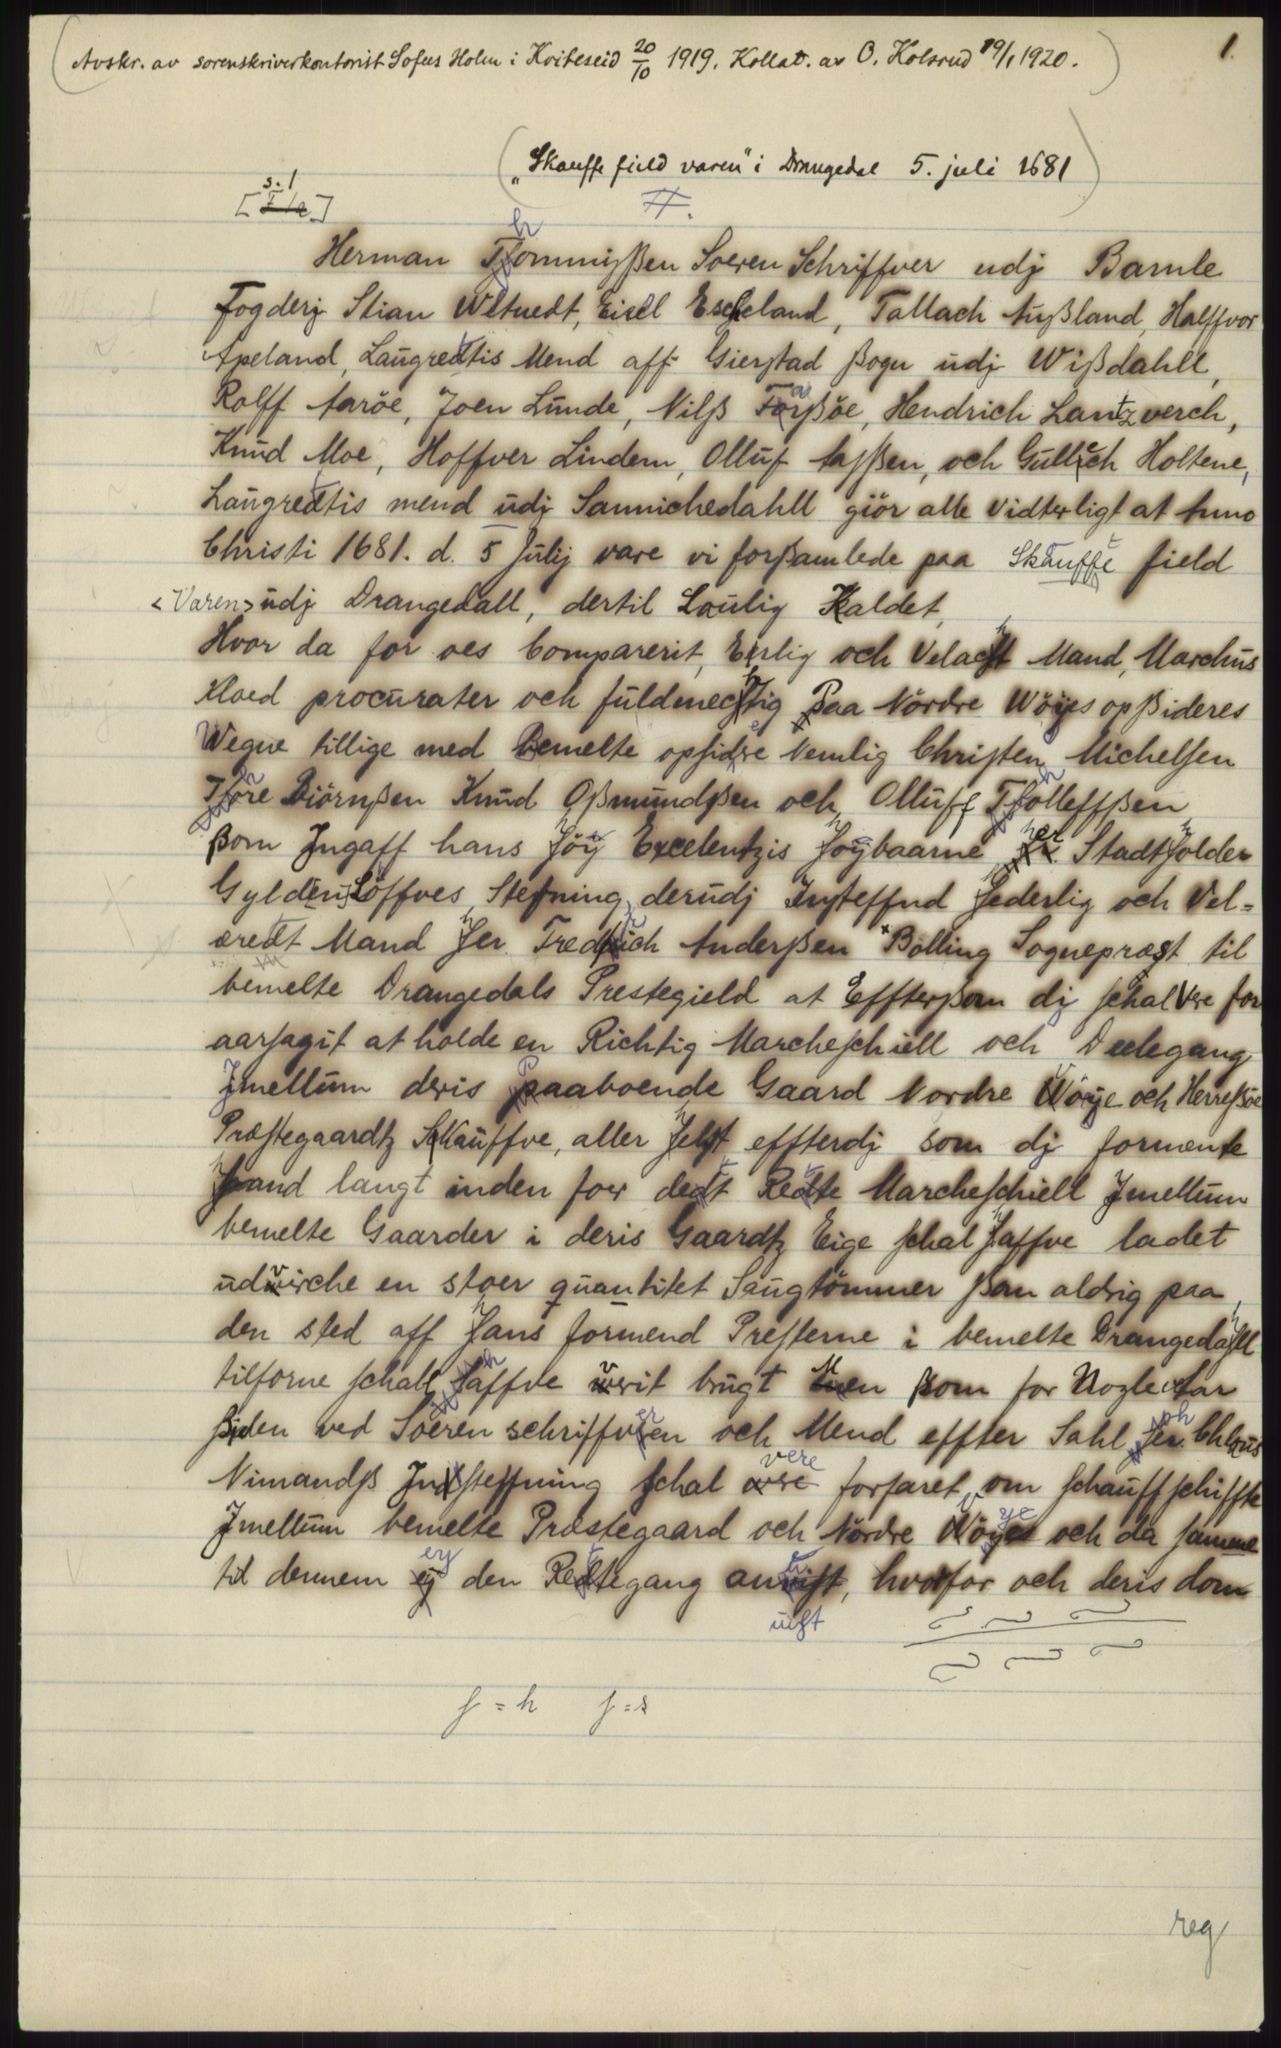 (Avskr. av sorenskriverkontorist Sofus Holm i Kviteseid 20/10 1919. Kollat. av O. Kolsrud 19/1 1920.)
1.
("Skauffe field varen" i Drangedal 5. juli 1681)
[s. 1]
Herman Thommißen Soeren Schriffver udj Bamle
Fogderj Stian Weltuedt, Eisel Escheland, Tallach Außland, Halffvor
Apeland, Laugrettis Mend aff Gierstad ßogn udj Wißdahll,
Rolff Aaröe, Joen Lunde, Nilß Farßöe, Hendrich Lantzverch,
Knud Moe, Hoffver Lindem, Olluf Aaßen, och Gullech Holtene,
Laugrettis mend udj Sannichedahll giör alle vidterligt at Anno
Christi 1681. d. 5 Julij vare vi forßamlede paa Skauffe field
<Varen> udj Drangedall, dertil Loulig Kaldet,
Hvor da for oes Comparerit, Erlig och Velacht Mand, Marchus
Kloed procurater och fuldmechtig Paa Nördre Wöyes opßideres
Wegne tillige med Bemelte opsidere Nemlig Christen Michelsen
Thore Biörnßen Knud Oßmundßen och Olluff Tholleffßen
ßom Jngaff hans höy Excelentzis hoybaarne her Stadtholder
Gyldenlöffves Stefning derudj Instefnd hederlig och Vel=
æret Mand her Fredrich Anderßen Bölling Sognepræst til
bemelte Drangedals Prestegield at Effterßom dj schal Vere for
aarsagit at holde en Richtig Marcheschiell och Deelegang
Jmellum deris Paaboende Gaard Nordre Vöye och Herreßöe
Præstegaardtz Skauffve, aller helst effterdj som dj formente
hand langt inden for dett Rette Marcheschiell Jmellum
bemelte Gaarder i deris Gaardtz Eige schal haffve ladet
udvirche en stoer quantitet Saugtömmer ßom aldrig paa
den sted aff hans formend Presterne i bemelte Drangedahll
tilforne schall haffve verit brugt Men ßom for Nogle Aar
ßiden ved Soeren schriffveren och Mend effter Sahl her Chlaus
Nimandß Jndsteffning schal vere forfaret om schauffschiffte
Jmellum bemelte Præstegaard och Nördre Vöye och da samme
til dennem ey den Rettegang anvist, hvorfor och deris dom
uist
f = h f = s
reg